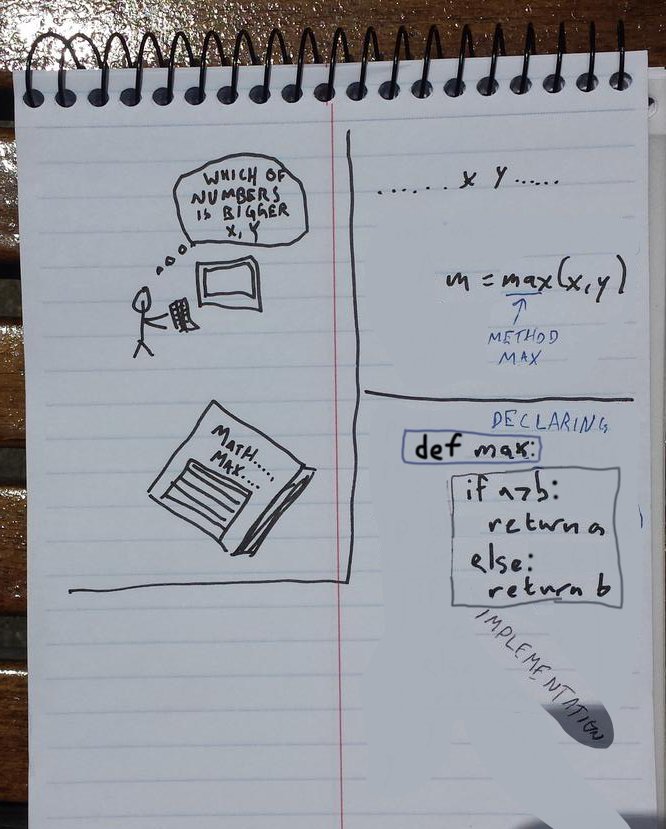 WHICH OF
NUMBERS
IS BIGGER
X, Y
MATH....
MAX....
...... X Y ......
m = max(x,y)
METHOD
MAX
DECLARING
def max:
if a>b:
return a
else:
return b
IMPLEMENTATION